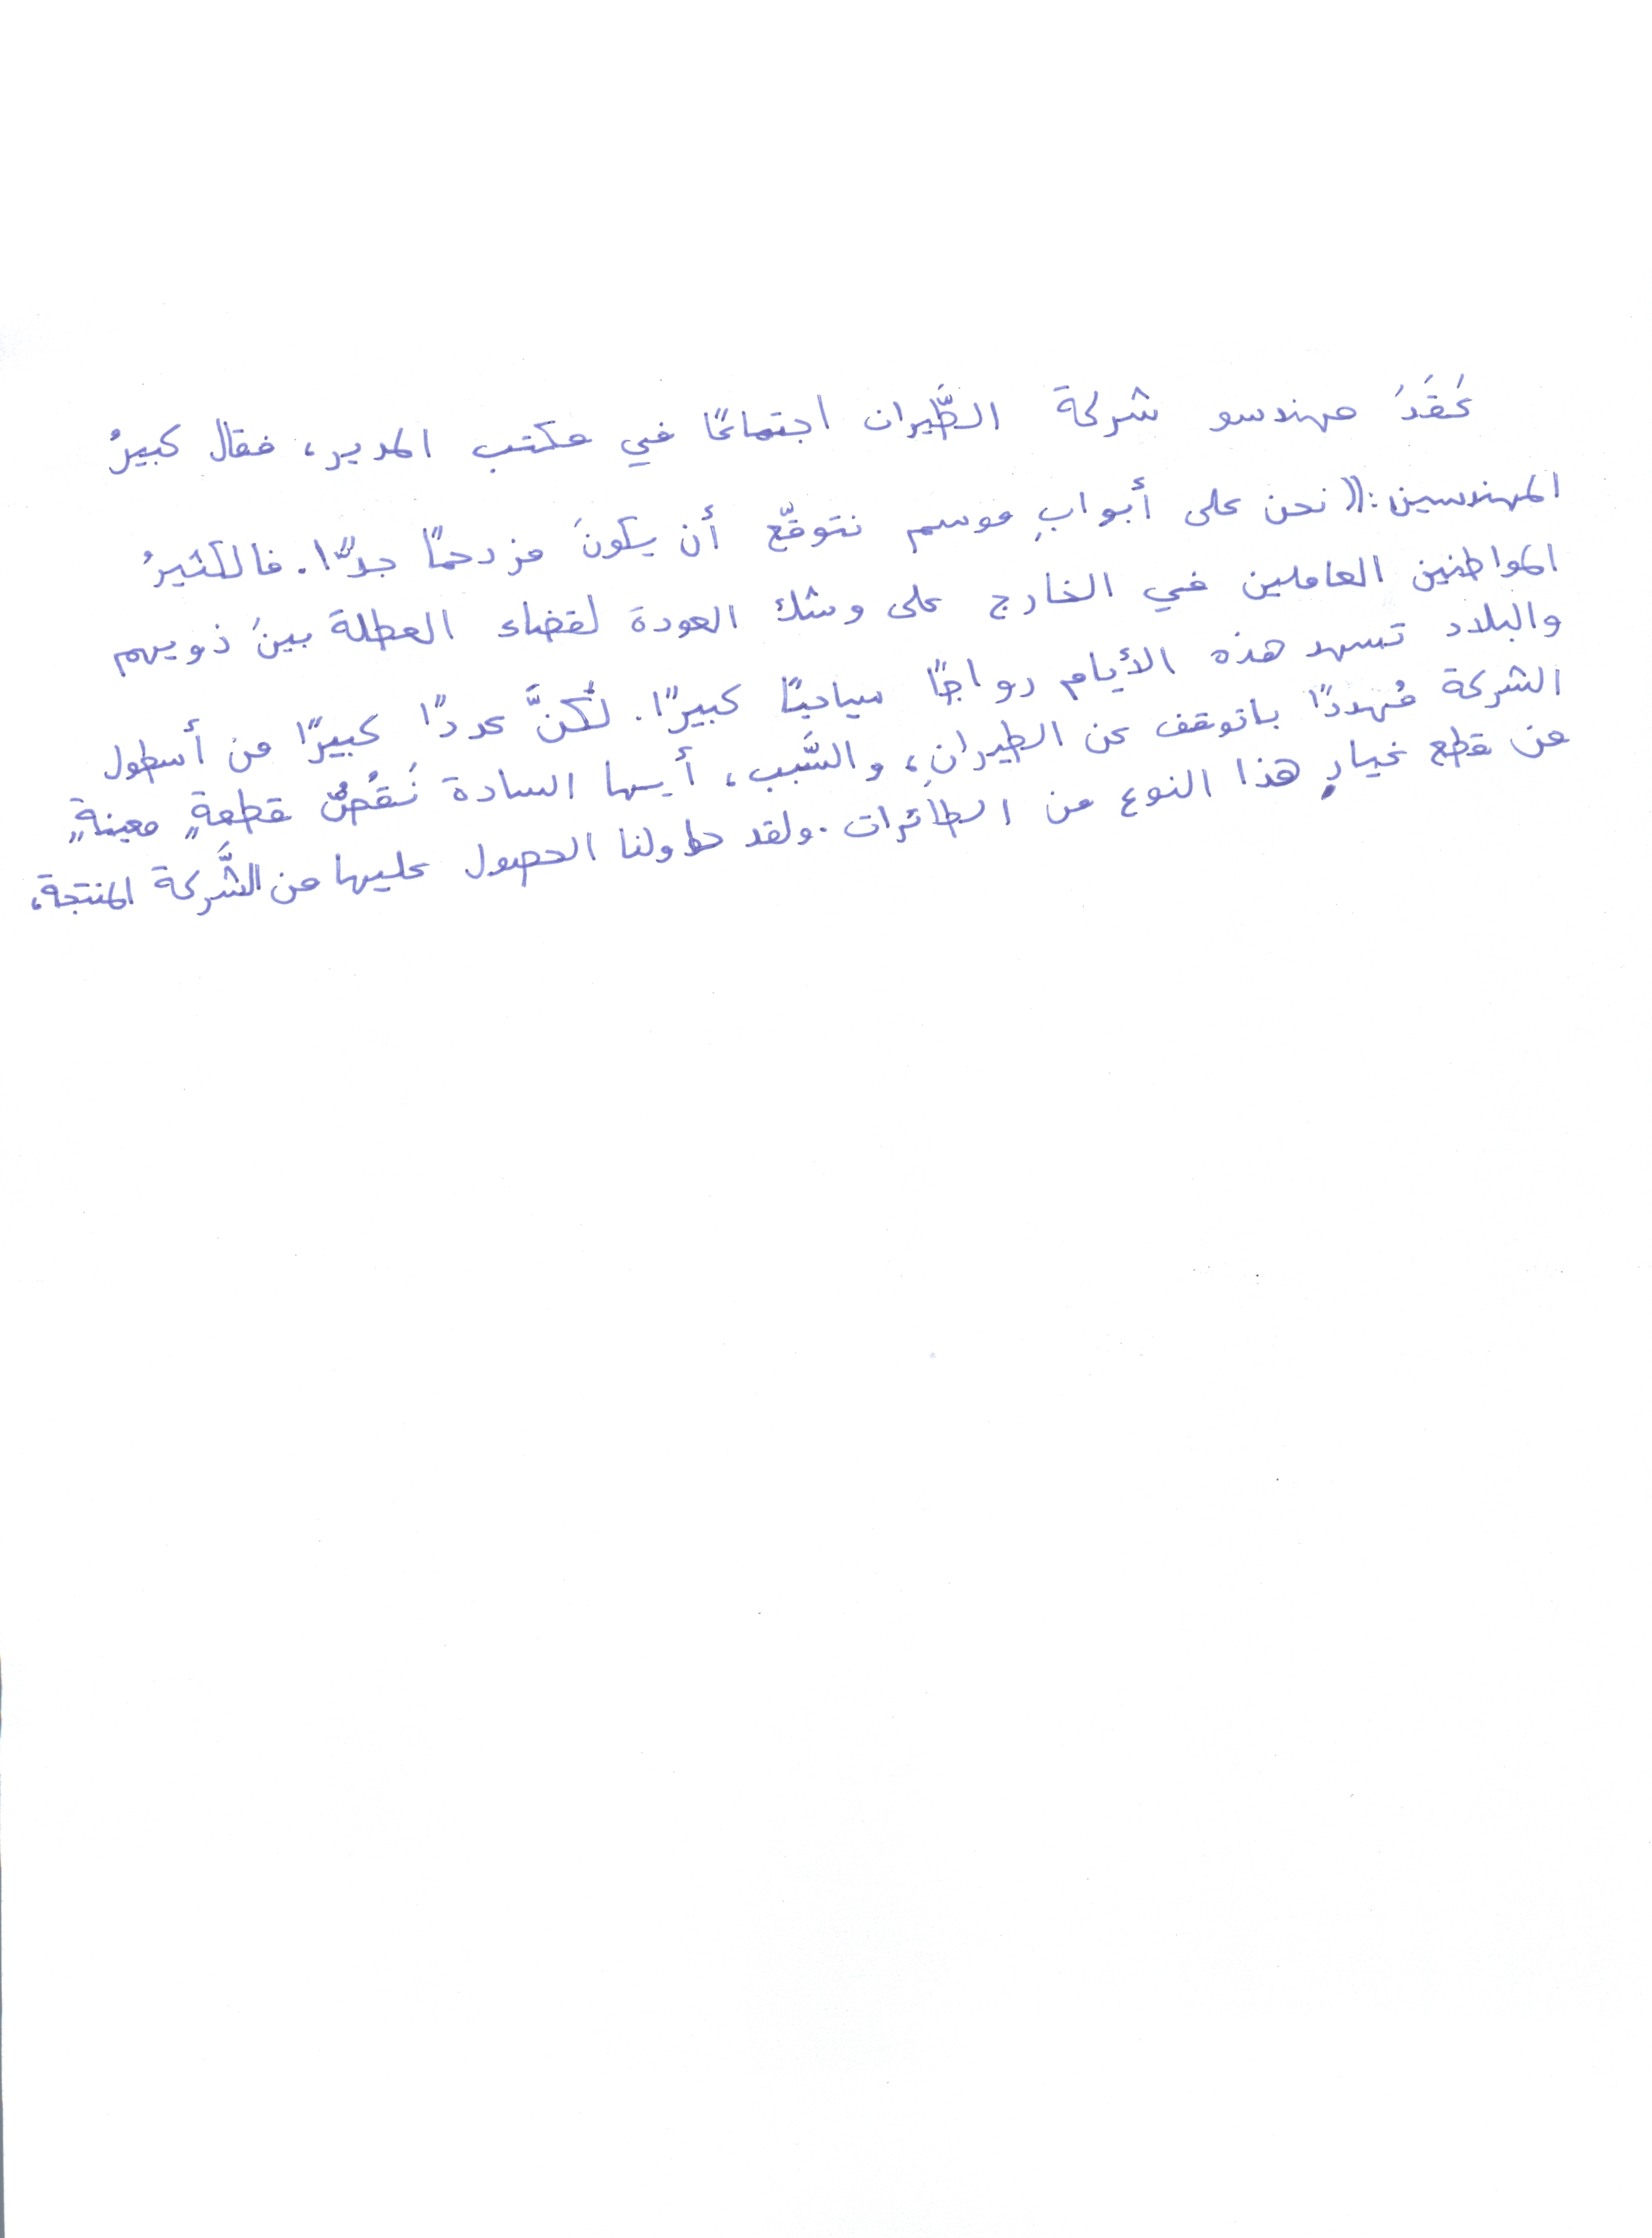 عَقَدَ مهندسو شركة الطَّيران اجتماعًا في مكتب المدير، فقال كبيرُ
المهندسين:(( نحن على أبوابِ موسم نتوقّع أن يكونَ مزدحمًا جدًّا. فالكثيرُ
المواطنين العاملين في الخارج على وشك العودة لقضاء العطلة بينَ ذويهم
والبلاد تسهد هذه الأيام رواجًا سياحيًا كبيرًا. لٰكنَّ عددًا كبيرًا من أسطول
الشركة مُهددًا باتوقف عن الطيرانِ، والسَّبب، أيها السادة نَقُصٌ قطعةٍ معينةٍ
من قطع غيارِ هذا النوع من الطائرات. ولقد حاولنا الحصول عليها من الشَّركة المنتجة،